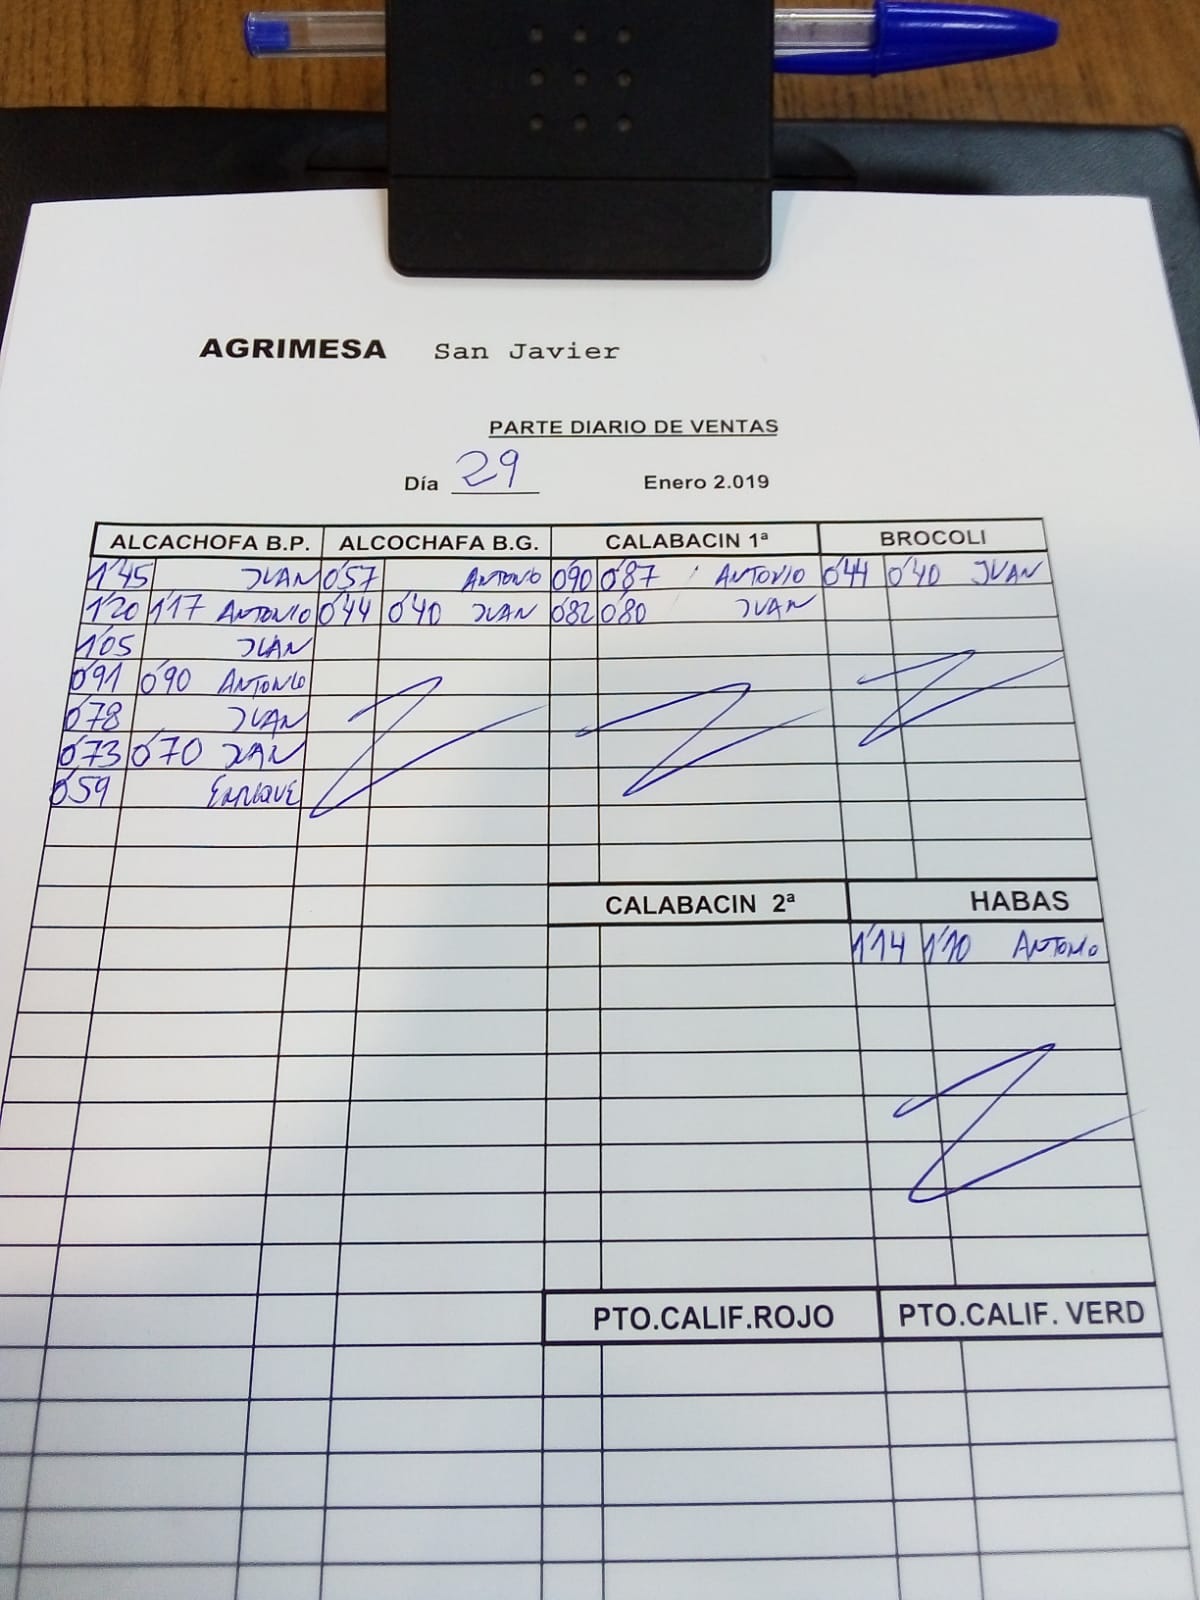 AGRIMESA San Javier
PARTE DIARIO DE VENTAS
Día 29 Enero 2.019
ALCACHOFA B.P. ALCOCHAFA B.G. CALABACIN 1ª BROCOLI
1'45 JUAN 0'57 ANTONIO 0'90 0'87 ANTONIO 0'44 0'40 JUAN
1'20 1'17 ANTONIO 0'44 0'40 JUAN 0'82 0'80 JUAN
1'05 JUAN
0'91 0'90 ANTONIO
0'78 JUAN
0'73 0'70 JUAN
0'59 ENRIQUE
CALABACIN 2ª HABAS
1'14 1'10 ANTONIO
PTO.CALIF.ROJO PTO.CALIF. VERD